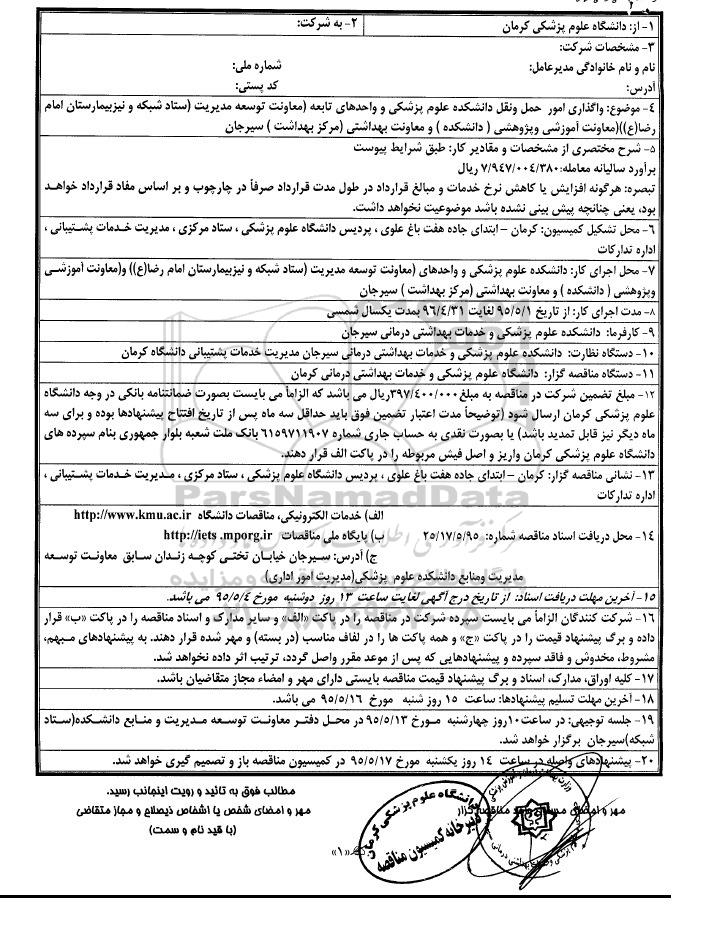 ۱- از: دانشگاه علوم پزشکی کرمان
۲- به شرکت:
۳- مشخصات شرکت:
نام و نام خانوادگی مدیرعامل:
شماره ملی:
آدرس:
کد پستی:
۴- موضوع: واگذاری امور حمل ونقل دانشکده علوم پزشکی و واحدهای تابعه (معاونت توسعه مدیریت (ستاد شبکه و نیزبیمارستان امام
رضا(ع))(معاونت آموزشی وپژوهشی ( دانشکده ) و معاونت بهداشتی (مرکز بهداشت ) سیرجان
۵- شرح مختصری از مشخصات و مقادیر کار: طبق شرایط پیوست
برآورد سالیانه معامله:۷/۹۴۷/۰۰۴/۳۸۰ ریال
تبصره: هرگونه افزایش یا کاهش نرخ خدمات و مبالغ قرارداد در طول مدت قرارداد صرفاً در چارچوب و بر اساس مفاد قرارداد خواهد
بود، یعنی چنانچه پیش بینی نشده باشد موضوعیت نخواهد داشت.
۶- محل تشکیل کمیسیون: کرمان – ابتدای جاده هفت باغ علوی ، پردیس دانشگاه علوم پزشکی ، ستاد مرکزی ، مدیریت خدمات پشتیبانی ،
اداره تدارکات
۷- محل اجرای کار: دانشکده علوم پزشکی و واحدهای (معاونت توسعه مدیریت (ستاد شبکه و نیزبیمارستان امام رضا(ع)) و(معاونت آموزشی
وپژوهشی ( دانشکده ) و معاونت بهداشتی (مرکز بهداشت ) سیرجان
۸- مدت اجرای کار: از تاریخ ۹۵/۵/۱ لغایت ۹۶/۴/۳۱ بمدت یکسال شمسی
۹- کارفرما: دانشکده علوم پزشکی و خدمات بهداشتی درمانی سیرجان
۱۰- دستگاه نظارت: دانشکده علوم پزشکی و خدمات بهداشتی درمانی سیرجان مدیریت خدمات پشتیبانی دانشگاه کرمان
۱۱- دستگاه مناقصه گزار: دانشگاه علوم پزشکی و خدمات بهداشتی درمانی کرمان
۱۲- مبلغ تضمین شرکت در مناقصه به مبلغ ۳۹۷/۴۰۰/۰۰۰ریال می باشد که الزاماً می بایست بصورت ضمانتنامه بانکی در وجه دانشگاه
علوم پزشکی کرمان ارسال شود (توضیحاً مدت اعتبار تضمین فوق باید حداقل سه ماه پس از تاریخ افتتاح پیشنهادها بوده و برای سه
ماه دیگر نیز قابل تمدید باشد) یا بصورت نقدی به حساب جاری شماره ۶۱۵۹۷۱۱۹۰۷ بانک ملت شعبه بلوار جمهوری بنام سپرده های
دانشگاه علوم پزشکی کرمان واریز و اصل فیش مربوطه را در پاکت الف قرار دهند.
۱۳- نشانی مناقصه گزار: کرمان – ابتدای جاده هفت باغ علوی ، پردیس دانشگاه علوم پزشکی ، ستاد مرکزی ، مدیریت خدمات پشتیبانی ،
اداره تدارکات
الف) خدمات الکترونیکی، مناقصات دانشگاه http://www.kmu.ac.ir
۱۴- محل دریافت اسناد مناقصه شماره: ۲۵/۱۷/۵/۹۵ ب) پایگاه ملی مناقصات http://iets .mporg.ir
ج) آدرس: سیرجان خیابان تختی کوچه زندان سابق معاونت توسعه
مدیریت ومنابع دانشکده علوم پزشکی(مدیریت امور اداری)
۱۵- آخرین مهلت دریافت اسناد: از تاریخ درج آگهی لغایت ساعت ۱۳ روز دوشنبه مورخ ۹۵/۵/۴ می باشد.
۱۶- شرکت کنندگان الزاماً می بایست سپرده شرکت در مناقصه را در پاکت «الف» و سایر مدارک و اسناد مناقصه را در پاکت «ب» قرار
داده و برگ پیشنهاد قیمت را در پاکت «ج» و همه پاکت ها را در لفاف مناسب (در بسته) و مهر شده قرار دهند. به پیشنهادهای مبهم،
مشروط، مخدوش و فاقد سپرده و پیشنهادهایی که پس از موعد مقرر واصل گردد، ترتیب اثر داده نخواهد شد.
۱۷- کلیه اوراق، مدارک، اسناد و برگ پیشنهاد قیمت مناقصه بایستی دارای مهر و امضاء مجاز متقاضیان باشد.
۱۸- آخرین مهلت تسلیم پیشنهادها: ساعت ۱۵ روز شنبه مورخ ۹۵/۵/۱۶ می باشد.
۱۹- جلسه توجیهی: در ساعت۱۰روز چهارشنبه مورخ ۹۵/۵/۱۳ در محل دفتر معاونت توسعه مدیریت و منابع دانشکده(ستاد
شبکه)سیرجان برگزار خواهد شد.
۲۰- پیشنهادهای واصله در ساعت ۱۴ روز یکشنبه مورخ ۹۵/۵/۱۷ در کمیسیون مناقصه باز و تصمیم گیری خواهد شد.
مطالب فوق به تائید و رویت اینجانب رسید.
مهر و امضای شخص یا اشخاص ذیصلاح و مجاز متقاضی
(با قید نام و سمت)
مهر و امضای
مناقصه گزار
دانشگاه علوم پزشکی کرمان
دبیرخانه کمیسیون مناقصه
«۱»
ParsNamadData